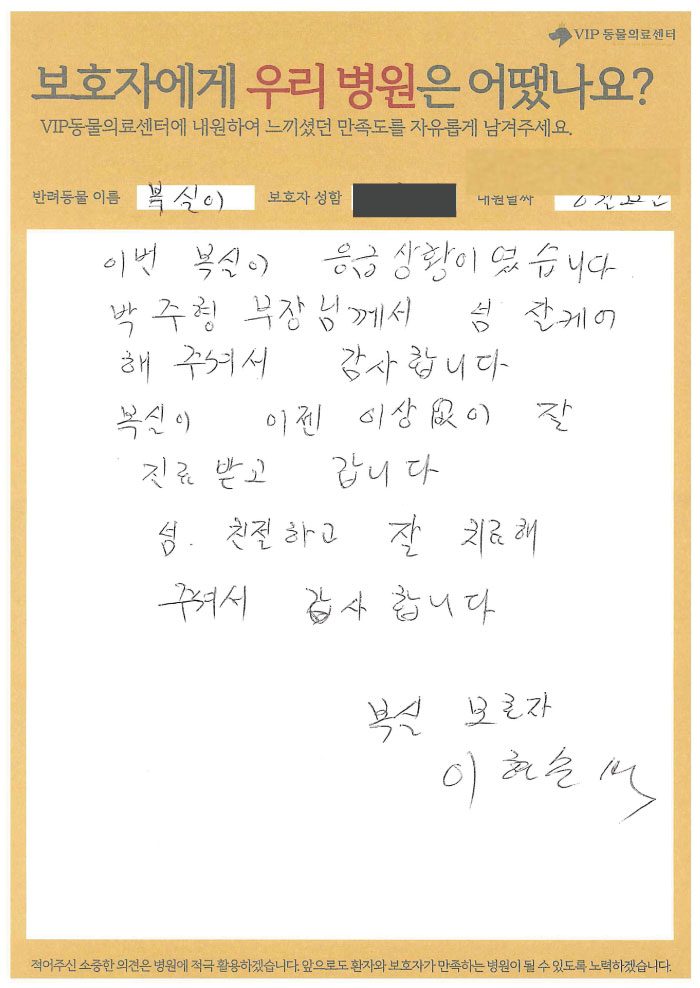 VIP 동물의료센터
보호자에게 우리 병원은 어땠나요?
VIP동물의료센터에 내원하여 느끼셨던 만족도를 자유롭게 남겨주세요.
반려동물 이름 복실이 보호자 성함 내원날짜
이번 복실이 응급상황이였습니다
박주형 부장님께서 넘 잘케어
해 주셔서 감사합니다
복실이 이젠 이상없이 잘
진료받고 갑니다
넘. 친절하고 잘 치료해
주셔서 감사합니다
복실 보호자
적어주신 소중한 의견은 병원에 적극 활용하겠습니다. 앞으로도 환자와 보호자가 만족하는 병원이 될 수 있도록 노력하겠습니다.